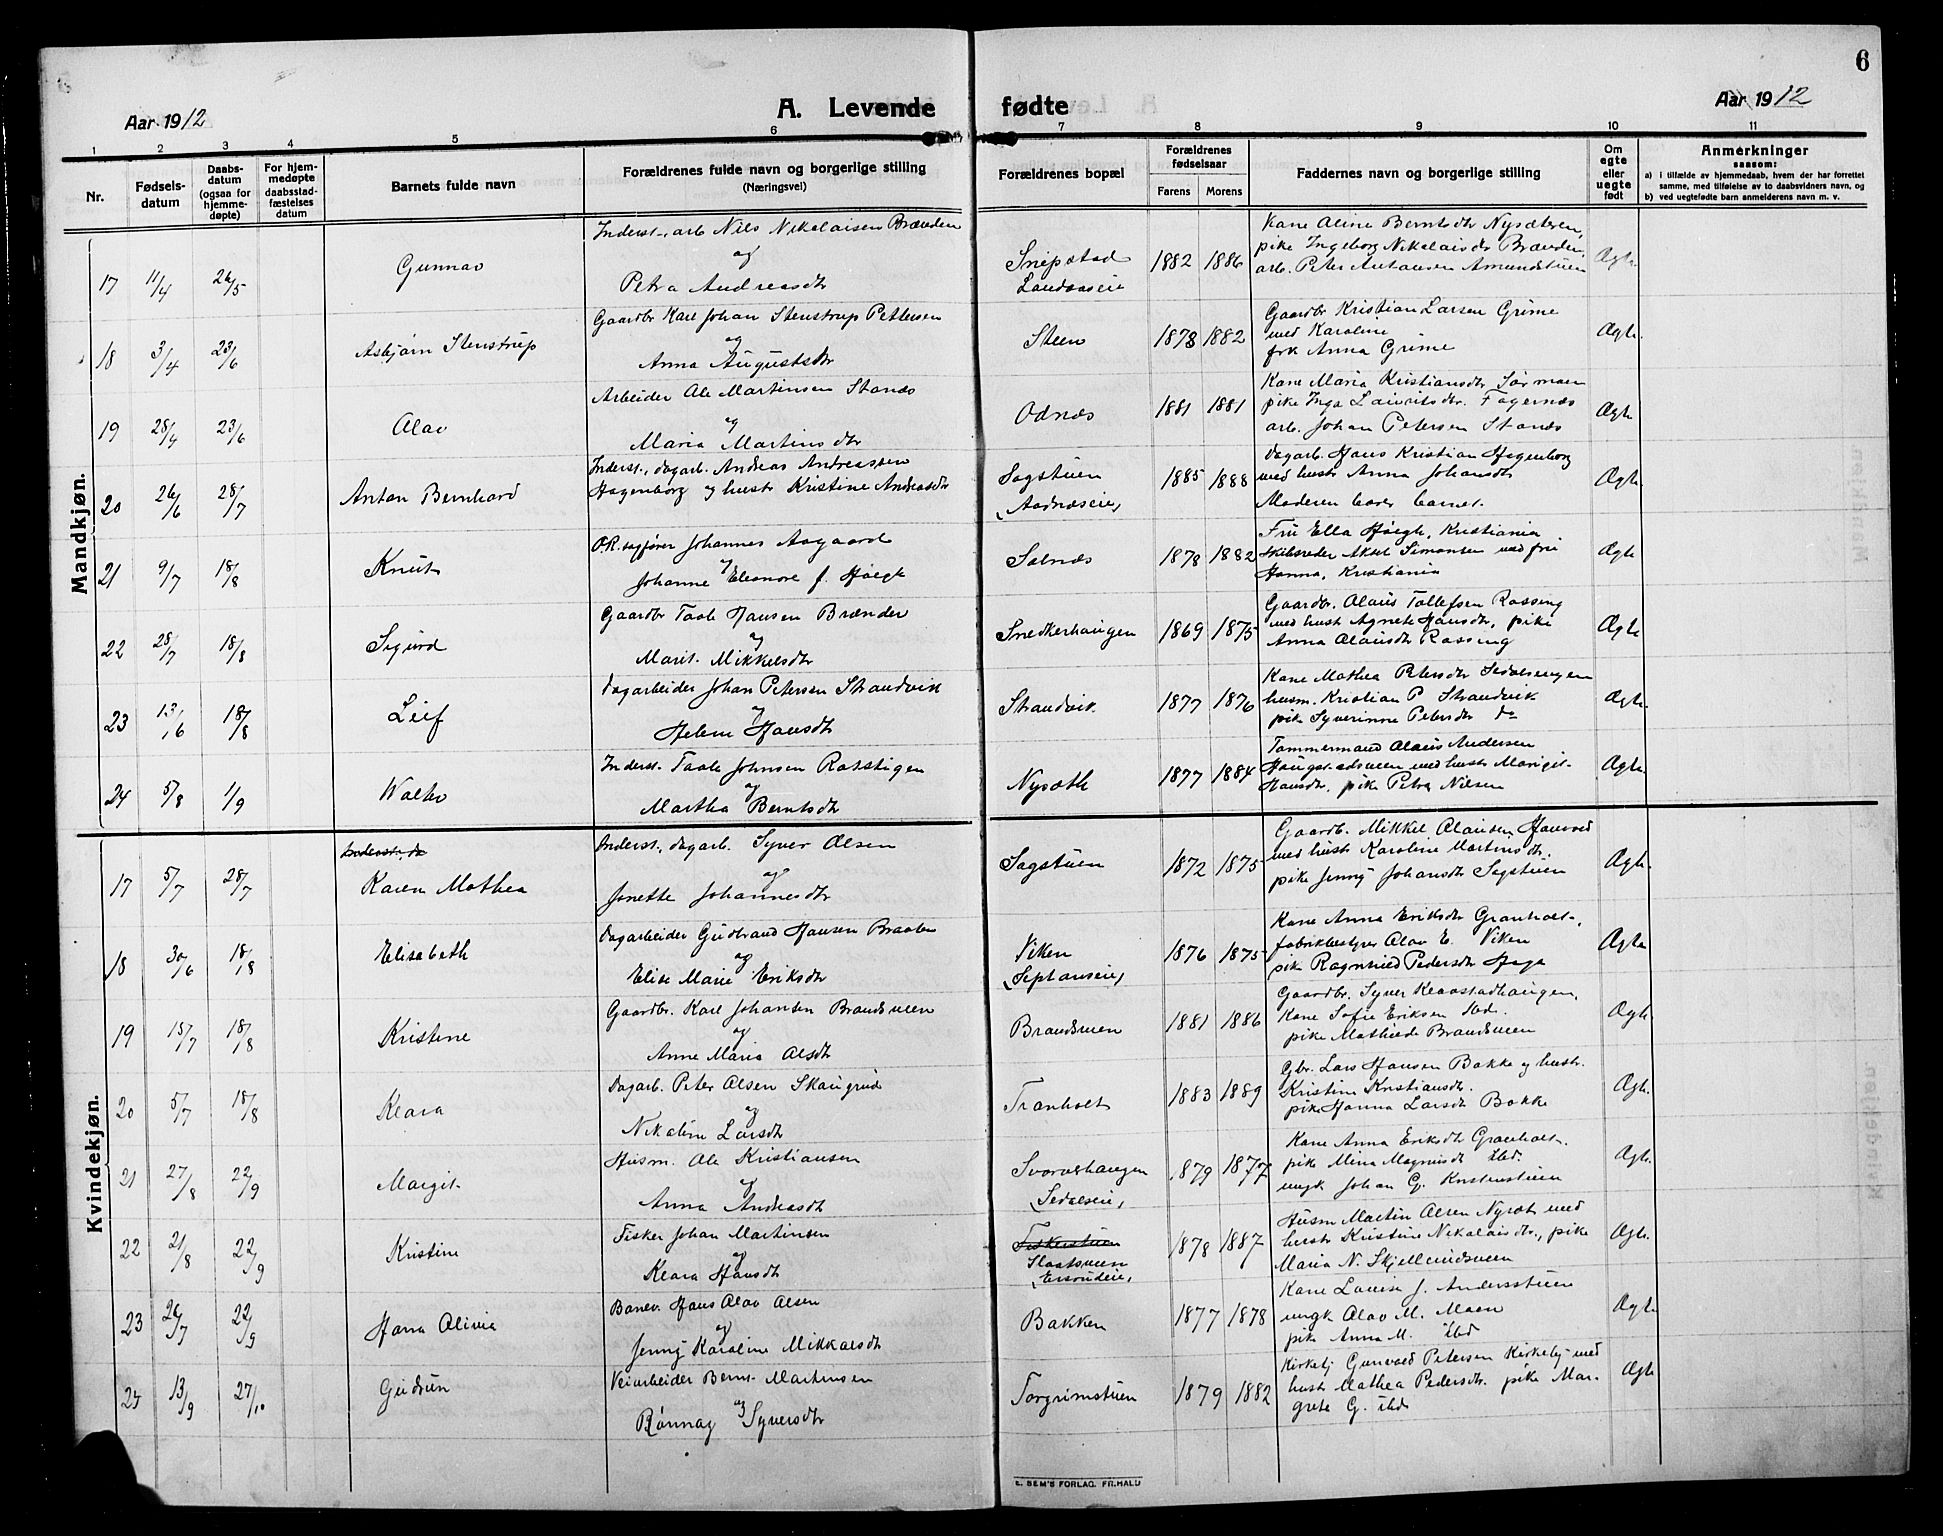 6
Aar 1912
A. Levende fødte
Aar 1912
1 2 3 4 5 6 7 8 9 10 11
Nr.
Fødsels-
datum
Daabs-
datum
(ogsaa for
hjemme-
døpte)
For hjem-
medøpte
daabsstad-
fæstelses
datum
Barnets fulde navn
Forældrenes fulde navn og borgerlige stilling
(Næringsvei)
Forældrenes bopæl
Forældrenes
fødselsaar
Farens Morens
Faddernes navn og borgerlig stilling
Om
egte
eller
uegte
født
Anmerkninger
saasom:
a) i tilfælde av hjemmedaab, hvem der har forrettet
samme, med tilføielse av to daabsvidners navn, og
b) ved uegtefødte barn anmelderens navn m. v.
Mandkjøn.
17 11/4 26/5 Gunnar
Inderst., arb Nils Nikolaisen Brænden
og
Petra Andreasdtr
Snipstad
Landaaseie
1882 1886
Kone Aline Berntsdtr Nysæteren,
pike Ingeborg Nikolaisdtr Brænden,
arb. Peter Antonsen Amundstuen
Ægte.
18 3/4 23/6 Asbjørn Stenstrup
Gaardbr Karl Johan Stenstrup Pettersen
og
Anna Augustsdtr
Steen
1878 1882
Gaardbr Kristian Larsen Grime
med Karoline
frk Anna Grime
Ægte.
19 28/4 23/6 Olav
Arbeider Ole Martinsen Stanæs
og
Maria Martinsdtr
Odnæs
1881 1881
Kone Maria Kristiansdtr Sørmoen
pike Inga Lauritsdtr. Fagernæs
arb. Johan Petersen Stanæs
Ægte
20 26/6 28/7 Anton Bernhard
Inderst., dagarb. Andreas Andreassen
Hagenborg og hustr Kristine Andreasdtr
Sagstuen
(Aadnæseie)
1885 1888
Dagarb. Hans Kristian Hagenborg
med hustr Anna Johansdtr
Moderen bar barnet.
Ægte
21 9/7 18/8 Knut
O.R.sagfører Johannes Aagaard
og
Johanne Eleonore f. Høegh
Solnæs
1878 1882
Fru Ella Høegh, Kristiania
Skibsreder Aksel Simonsen med fru
Hanna, Kristiania
Ægte
22 28/7 18/8 Sigurd
Gaardbr Tosten Hansen Brænden
og
Marit Mikkelsdtr
Snedkerhaugen
1869 1875
Gaardbr. Olaus Tollefsen Rossing
med hust Agnete Hansdtr, pike
Anna Olausdtr Rossing
Ægte
23 13/6 18/8 Leif
Dagarbeider Johan Petersen Strandvik
og
Helene Hansdtr
Strandvik
1877 1876
Kone Mathea Petersdtr Sedalsengen
husm. Kristian P. Strandvik
pike Syverinne Petersdtr do
Ægte.
24 5/8 1/9 Walter
Inderst. Johnsen
og
Martha Berntsdtr
Nysæth
1877 1884
Tømmermand Olaus Andersen
med hustr Marigit
Hansdtr, pike Petra Nilsen
Ægte.
Kvindekjøn.
Inderst., da
17 5/7 28/7 Karen Mathea
Inderst., dagarb. Syver Olsen
og
Jonette Johannesdtr
Sagstuen
1872 1875
Gaardb. Mikkel Olausen
med hustr Karoline Martinsdtr,
pike Jenny Johansdtr Sagstuen
Ægte.
18 30/6 18/8 Elisabeth
Dagarbeider Gudbrand Hansen Braaten
og
Elise Marie Eriksdtr
Viken
(Septanseie)
1876 1875
Kone Anna Eriksdtr Granholt,
fabrikbestyrer Olav E. Viken
pike Ragnhild Pedersdtr Haga
Ægte
19 15/7 18/8 Kristine
Gaardbr. Karl Johansen Brandsveen
og
Anne Maria Olsdtr
Brandsveen
1881 1886
Gaardbr. Syver Klaastadhaugen,
Kone Sofie Eriksen Ibd.
pike Mathilde Brandsveen
Ægte
20 5/7 18/8 Klara
Dagarb. Peter Olsen Skaugrud
og
Nikoline Larsdtr
Tranholt
1883 1889
Gbr. Lars Hansen Bakke og hustr.
Kristine Kristiansdtr.
pike Hanna Larsdtr Bakke
Ægte.
21 27/8 22/9 Margit
Husm. Ole Kristiansen
og
Anna Andreasdtr
Svorverhaugen
(Sedalseie)
1879 1877
Kone Anna Eriksdtr Granholt.
pike Mina Magnusdtr Ibd.
ungk Johan G. Kristenstuen
Ægte.
22 21/8 22/9 Kristine
Fisker Johan Martinsen
og
Klara Hansdtr
Fiskerstuen
Slaatsveen
1878 1887
Husm Martin Olsen Nysæt med
hustr Kristine Nikolaisdtr., pike
Maria N. Skjellundsveen
Ægte.
23 26/7 22/9 Hanna Olivia
Banev. Hans Olav Olsen
og
Jenny Karoline Mikkelsdtr
Bakken
1877 1878
Kone Louise J. Andersstuen
ungk Olav M. Moen
pike Anna M. Ibd
Ægte
24 13/9 27/10 Gudrun
Veiarbeider Bernt Martinsen
og
Rønnaug Syversdtr
Torgrimstuen
1879 1882
Kirketj Gunvald Petersen Kirkeby med
hustr Mathea Pedersdtr. pike Mar-
grete G. ibd
Ægte
E. SEM'S FORLAG. FR.HALD